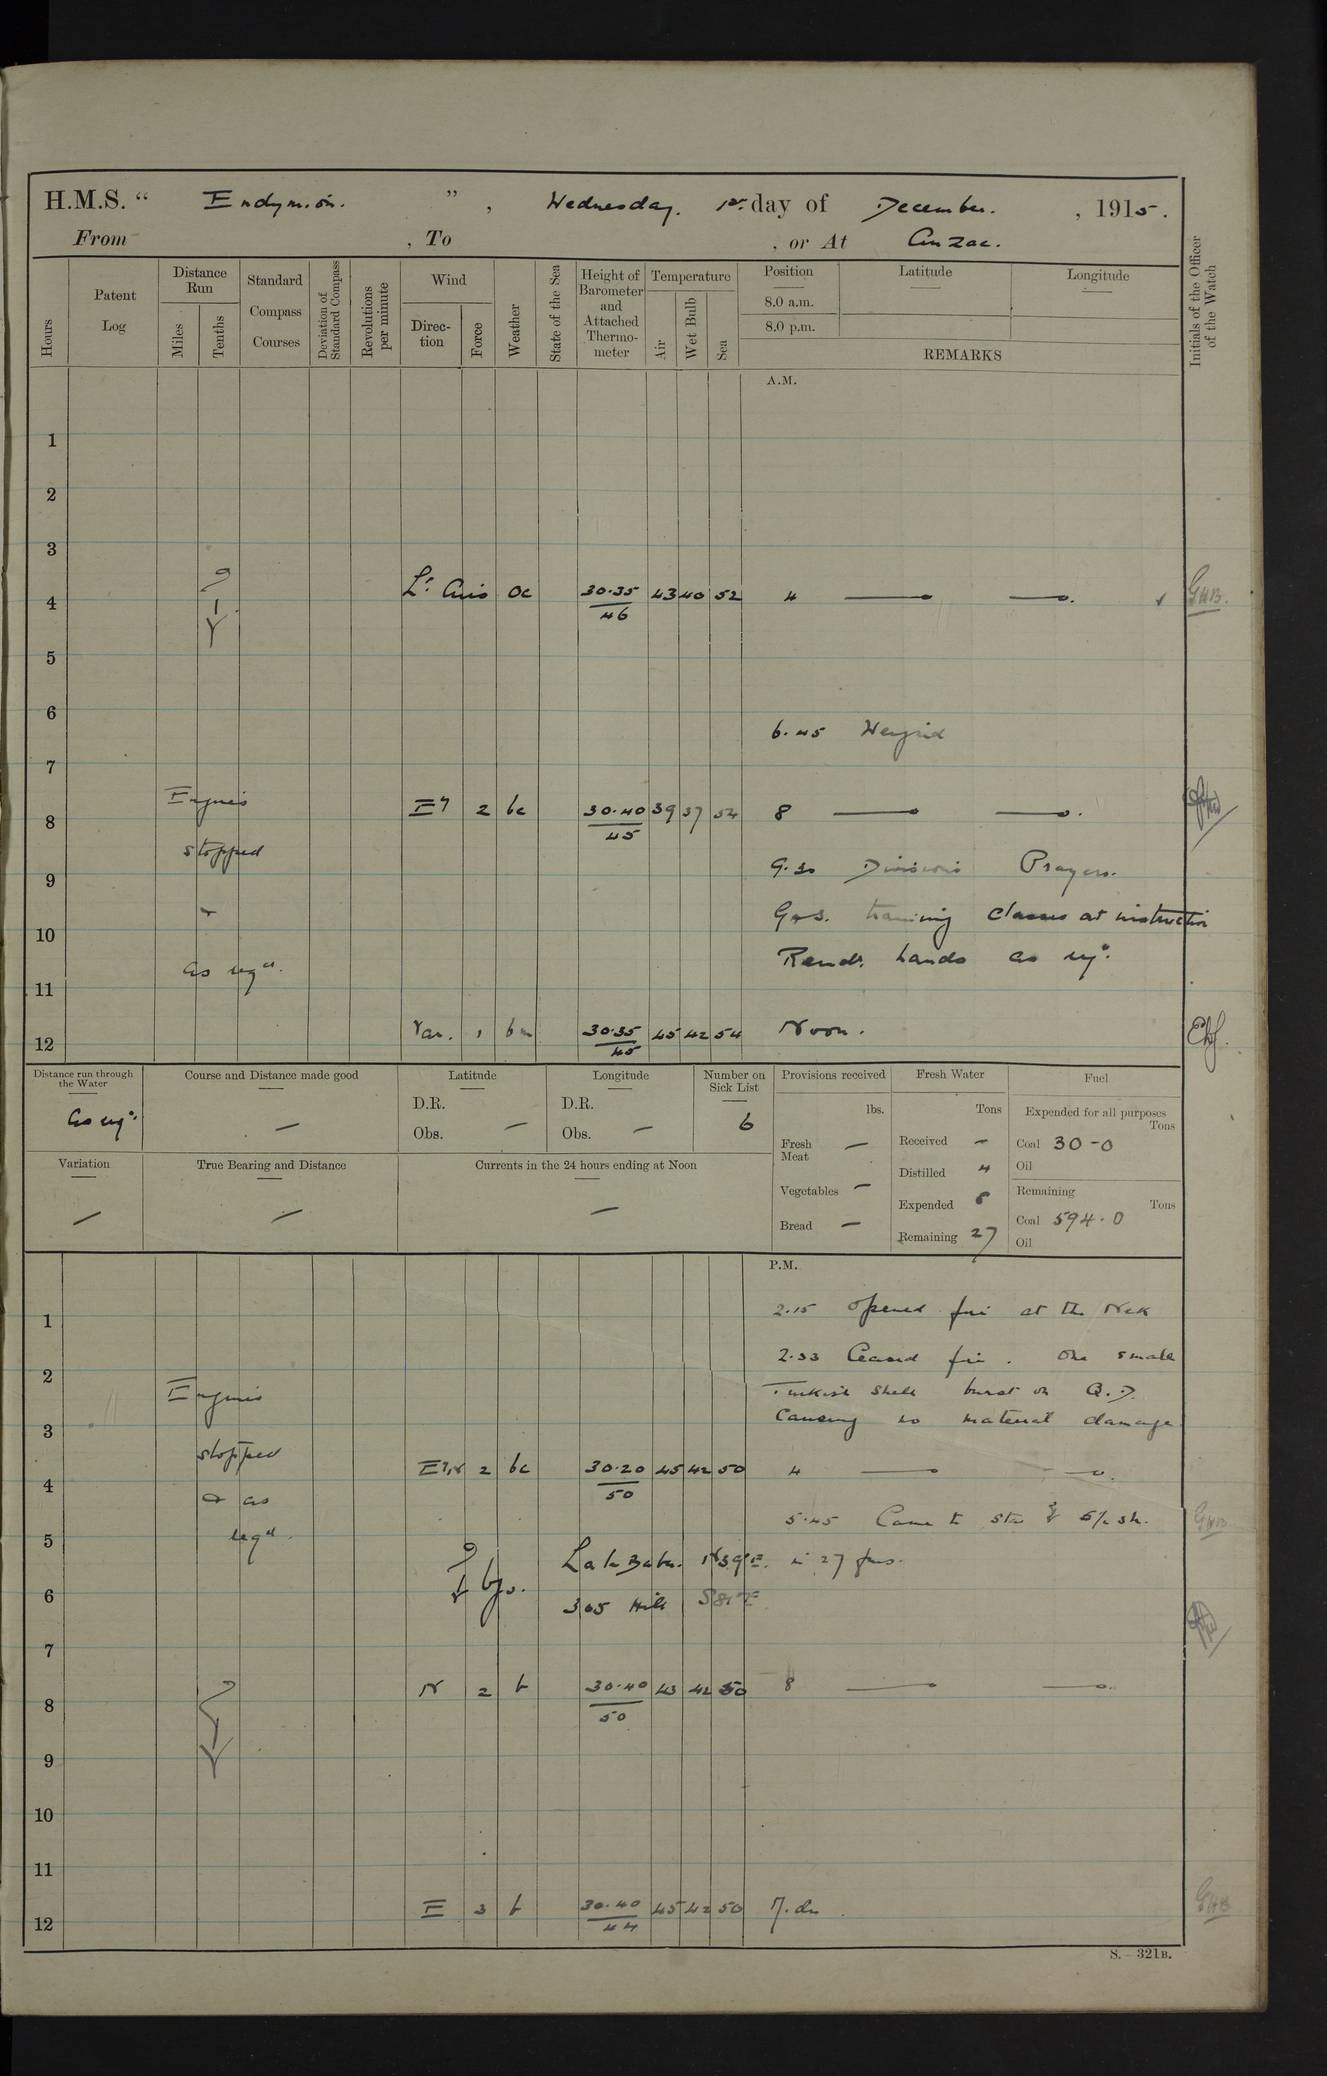 H.M.S. " Endymion. " , Wednesday. 1st day of December. , 1915.
From , To , or At Anzac.
Hours
Patent Log
Distance Run
Miles
Tenths
Standard Compass Courses
Deviation of Standard Compass
Revolutions per minute
Wind
Direction
Force
Weather
State of the Sea
Height of Barometer and Attached Thermometer
Temperature
Air
Wet Bulb
Sea
Position
8.0 a.m.
8.0 p.m.
Latitude
Longitude
REMARKS
Initials of the Officer of the Watch
A.M.
1
2
3
4 Lt Airs oc 30.35 46 43 40 52 4 GHB.
5
6
6.45 Weighed
7
Engines
8 Ely 2 bc 30.40 45 39 37 54 8
stopped
9
9.30 Divisions Prayers.
training classes at instruction
10
as reqd. Remdr. hands as req.
11
12 Var. 1 bm 30.35 45 45 42 54 Noon.
Distance run through the Water
as req.
Course and Distance made good
—
Latitude
D.R.
Obs. —
Longitude
D.R.
Obs. —
Number on Sick List
6
Provisions received
lbs.
Fresh Meat —
Vegetables —
Bread —
Fresh Water
Tons
Received —
Distilled 4
Expended
Remaining 27
Fuel
Expended for all purposes
Tons
Coal 30-0
Oil
Remaining
Tons
Coal 594.0
Oil
Variation
—
True Bearing and Distance
—
Currents in the 24 hours ending at Noon
—
P.M.
1 2.15 Opened fire at the Nek
2 2.33 Ceased fire. One small
Engines Turkish shell burst on Q.D.
3 causing no material damage.
stopped
4 2 bc 30.20 50 45 42 50 4
& as
5.45 Came to
5 reqd. GHB
in 27 fms.
6 305 Hill
7
8 N 2 b 30.40 50 43 42 50 8
9
10
11
12 E 3 b 30.40 44 45 42 50 GHB
S. 321B.